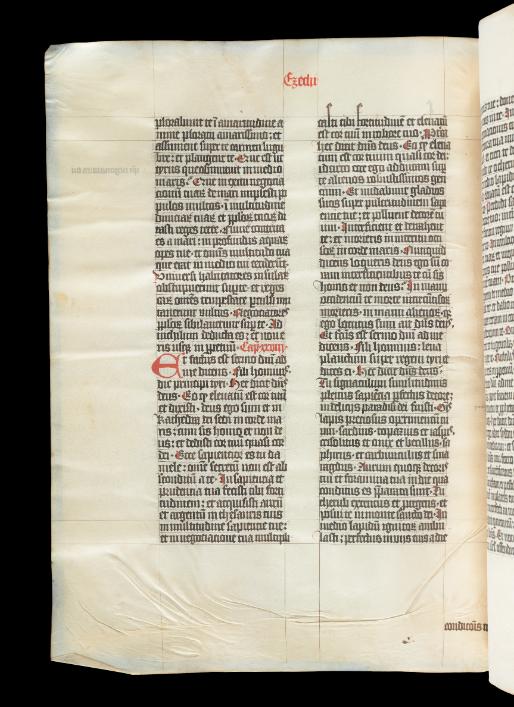 Ezechi
plorabunt te ī amaritudine a
nime ploratu amarissimo: et
assument super te carmen lugu
bre: et plangent te. Que est ut
tyrus que obmutuit in medio
maris. Que in exitu negocia
populos multos. ī multitudine
diuiciarū tuarū et pplorū tuorū di
tasti reges terre. Nunc contrita
es a mari: in profundis aquarū
opes tue: et omnis multitudo tua
que erat in medio tui ceciderūt.
Uniuersi habitatores insularū
obstupuerunt super te: et reges
earū omnes tempestate perculsi mu
tauerunt vultus. Negociatores
pplorū sibilauerunt super te. Ad
nichilum deducta es: et non e
ris usque in perpetuū. Cap. xxviij
Et factus est sermo dnī ad
me dicens. Fili hominis
dic principi tyri. Hec dicit dn̄s
deus. Eo q eleuatū est cor tuū
et dixisti. deus ego sum et in
kathedra dei sedi in corde ma
ris: cum sis homo et non de
us: et dedisti cor tuū quasi cor
dei. Ecce sapientior es tu da
niele: omne secretū non est abs
conditū a te. In sapientia et
prudentia tua fecisti tibi forti
tudinem: et acquisisti aurū
et argentū in thesauris tuis
in multitudine sapientie tue:
et in negociacione tua multipli
casti tibi fortitudinē: et eleuatū
est cor tuū in robore tuo. Prop
hec dicit dn̄s deus. Eo q eleua
tum est cor tuum quasi cor dei:
idcirco ecce ego adducam sup
te alienos robustissimos gen
tium. Et nudabunt gladios
suos super pulcritudinem sapi
entie tue: et polluent decorē tu
um. Interficient et detrahent
te: et morieris in interitu occi
sorū in corde maris. Nunquid
dicens loqueris deus ego sū co
ram interficientibus te: cū sis
homo et non deus? In manu
occidentiū te morte incircūcisorū
morieris. in manu alienorū. qr
ego locutus sum ait dn̄s deus.
Et factus est sermo dnī ad me
dicens. Fili hominis leua
planctum super regem tyri: et
dices ei. Hec dicit dn̄s deus.
Tu signaculum similitudinis
plenus sapientia perfectus decore:
in deliciis paradisi dei fuisti. Oīs
lapis preciosus operimentū tu
um. sardius. topazius et iaspis.
crisolitus et onix et berillus. sa
phirus. et carbunculus et sma
ragdus. Aurum quoque decoris
tui: et foramina tua in die qua
conditus es preparata sunt. Tu
cherub extentus et protegens. et
posui te in monte sancto dei. In
medio lapidū ignitorū ambu
lasti: perfectus in viis tuis a die
condicōis t